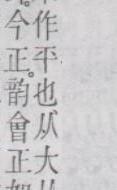 作平也从大
今正。韵會正